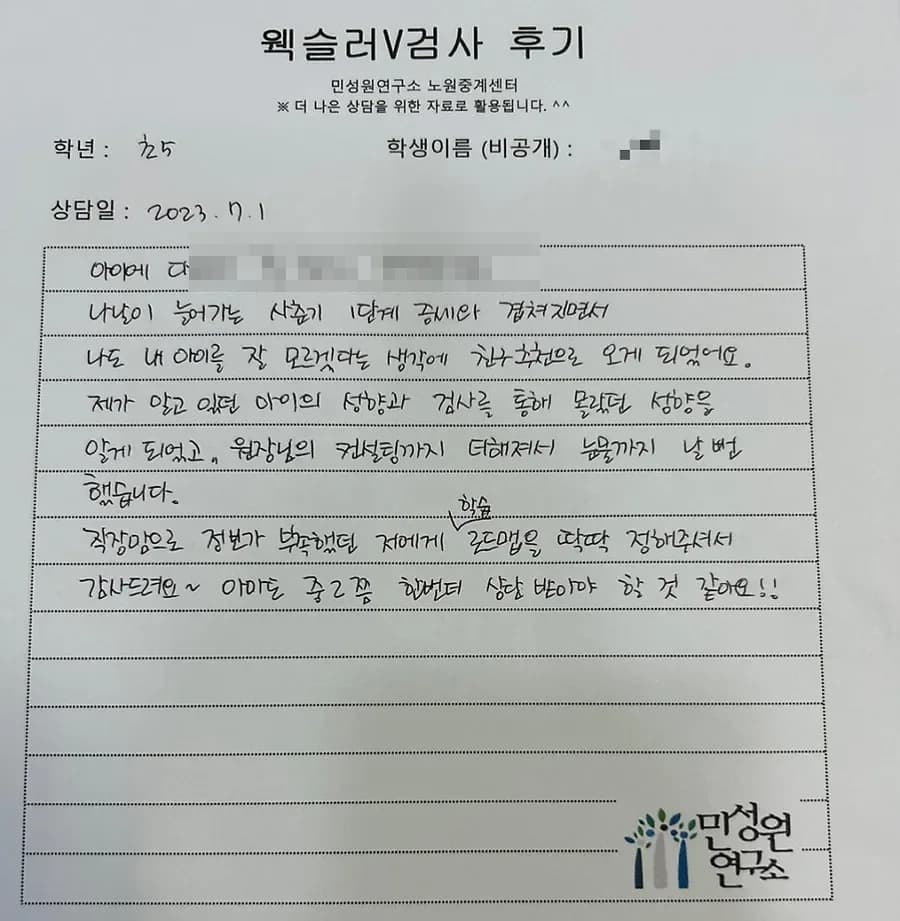 웩슬러V검사 후기
민성원연구소 노원중계센터
※ 더 나은 상담을 위한 자료로 활용됩니다. ^^
학년 : 초5 학생이름 (비공개) :
상담일 : 2023.7.1
아이에 다
나날이 늘어가는 사춘기 1단계 증세와 겹쳐지면서
나도 내 아이를 잘 모르겠다는 생각에 친구추천으로 오게 되었어요.
제가 알고 있던 아이의 성향과 검사를 통해 몰랐던 성향을
알게 되었고, 원장님의 컨설팅까지 더해져서 눈물까지 날 뻔
했습니다.
직장맘으로 정보가 부족했던 저에게 학습 로드맵을 딱딱 정해주셔서
감사드려요~ 아마도 중2쯤 한번더 상담 받아야 할 것 같아요!!
민성원
연구소